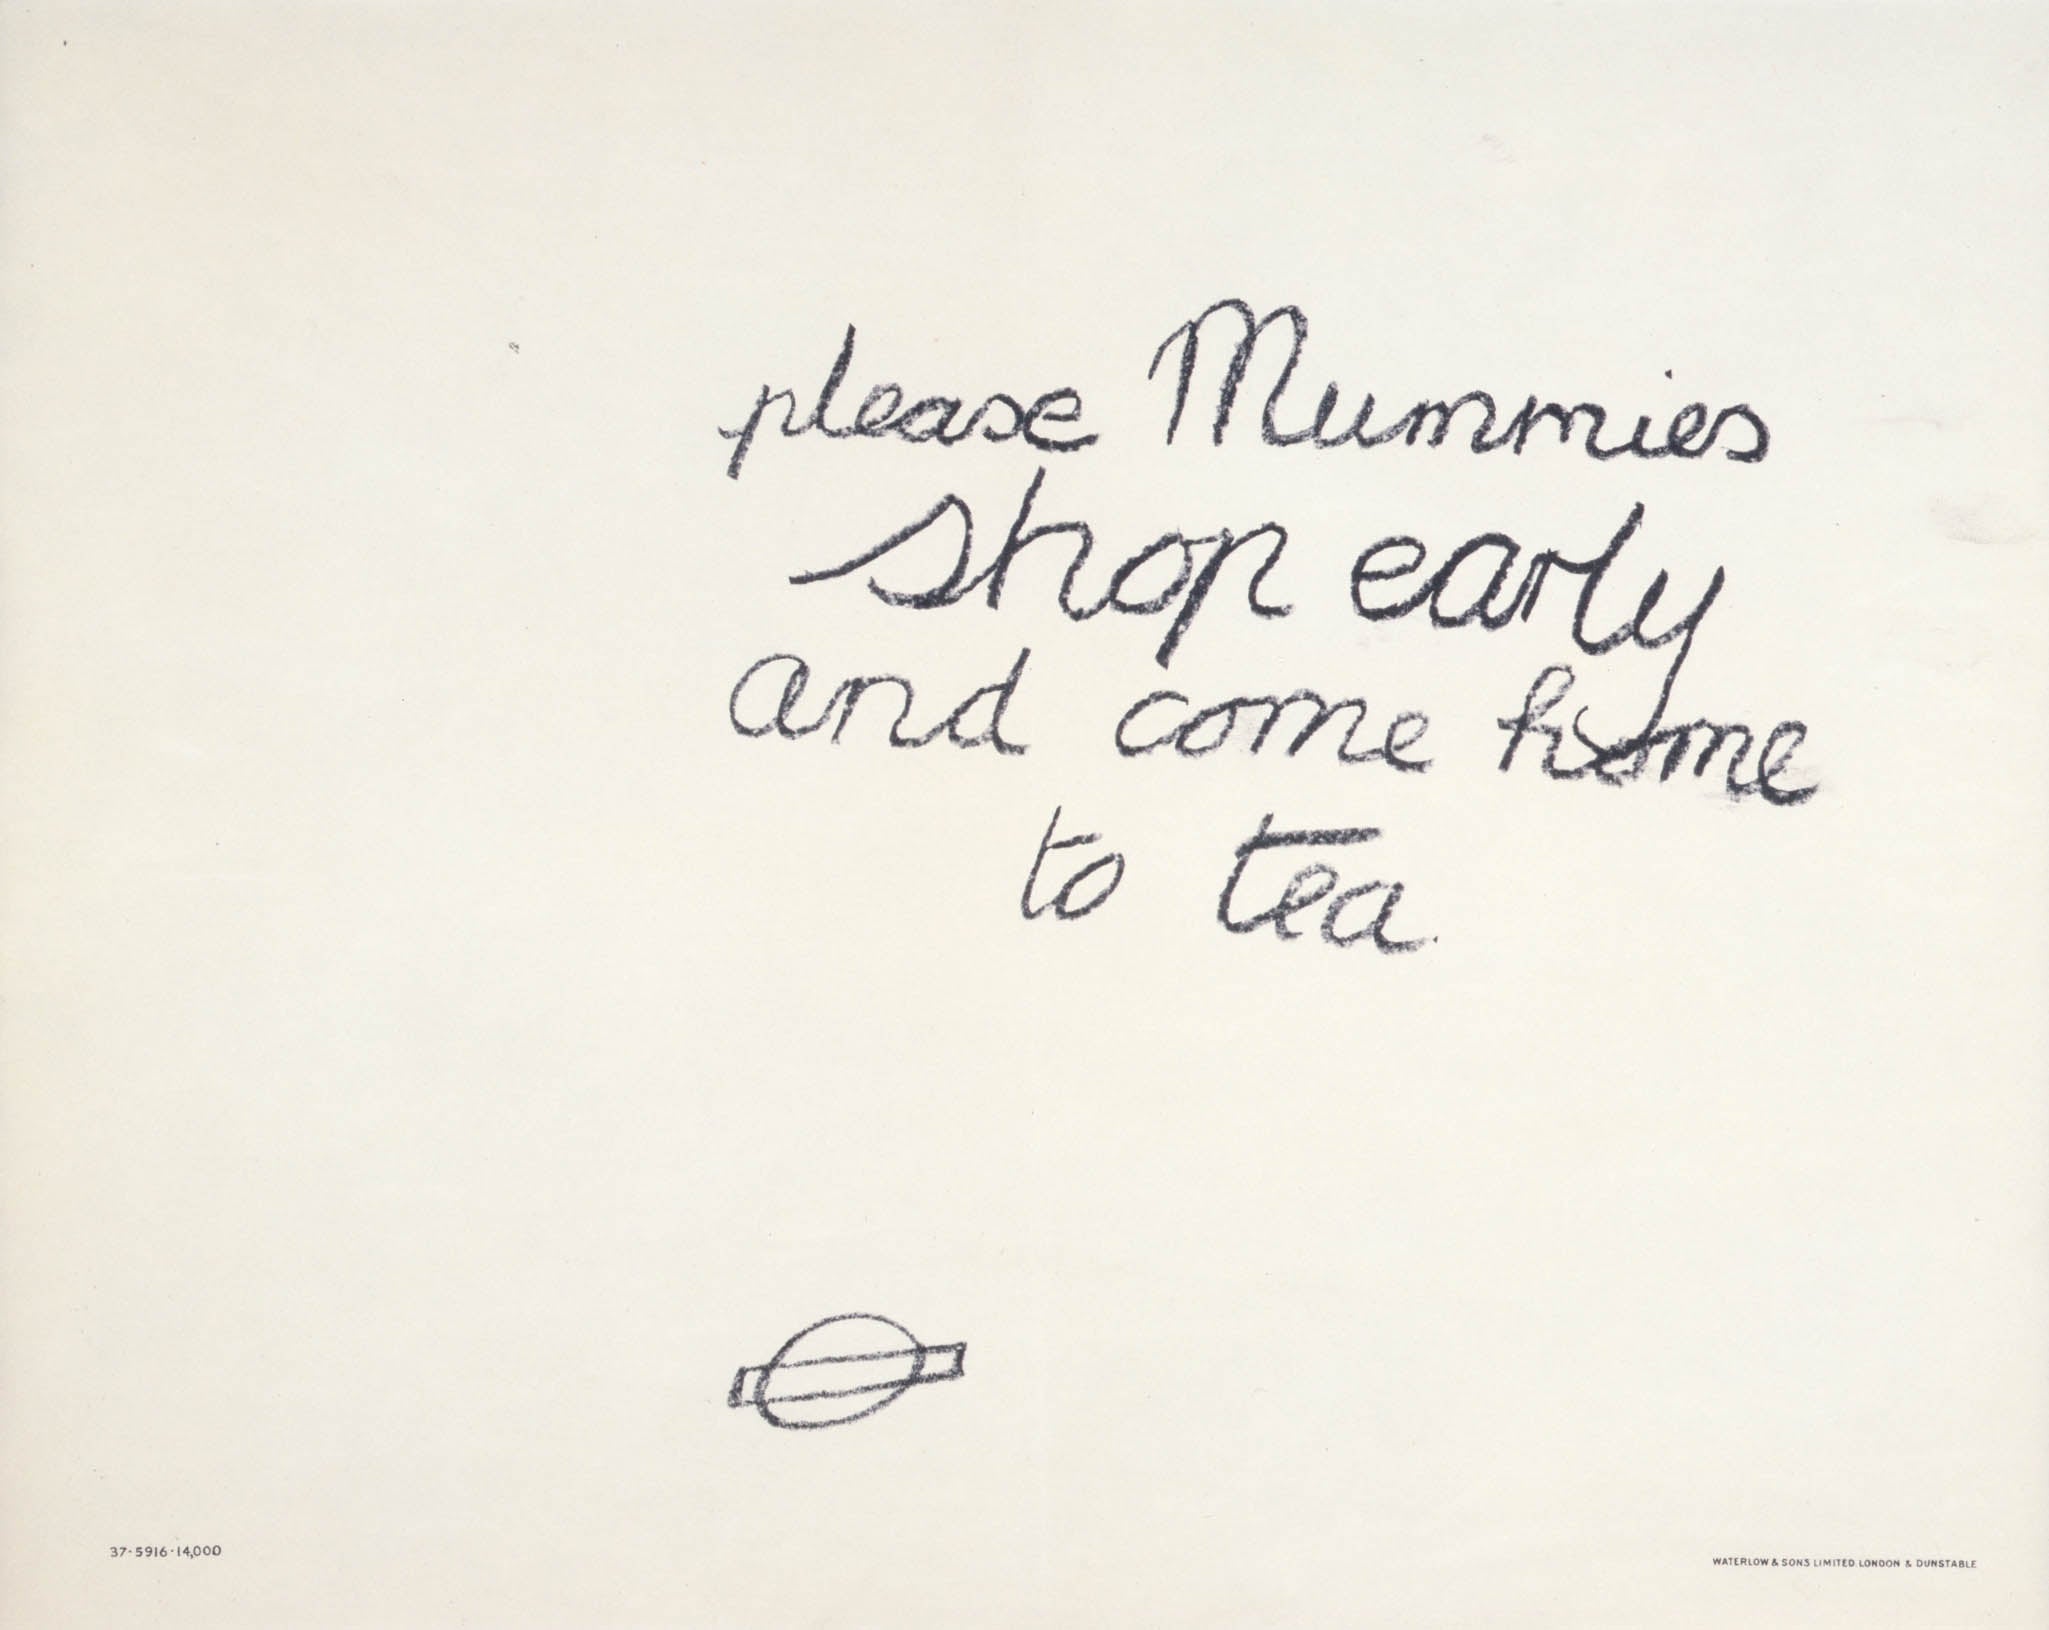 please Mummies
shop early
and come home
to tea.
37-5916-14,000
WATERLOW & SONS LIMITED. LONDON & DUNSTABLE